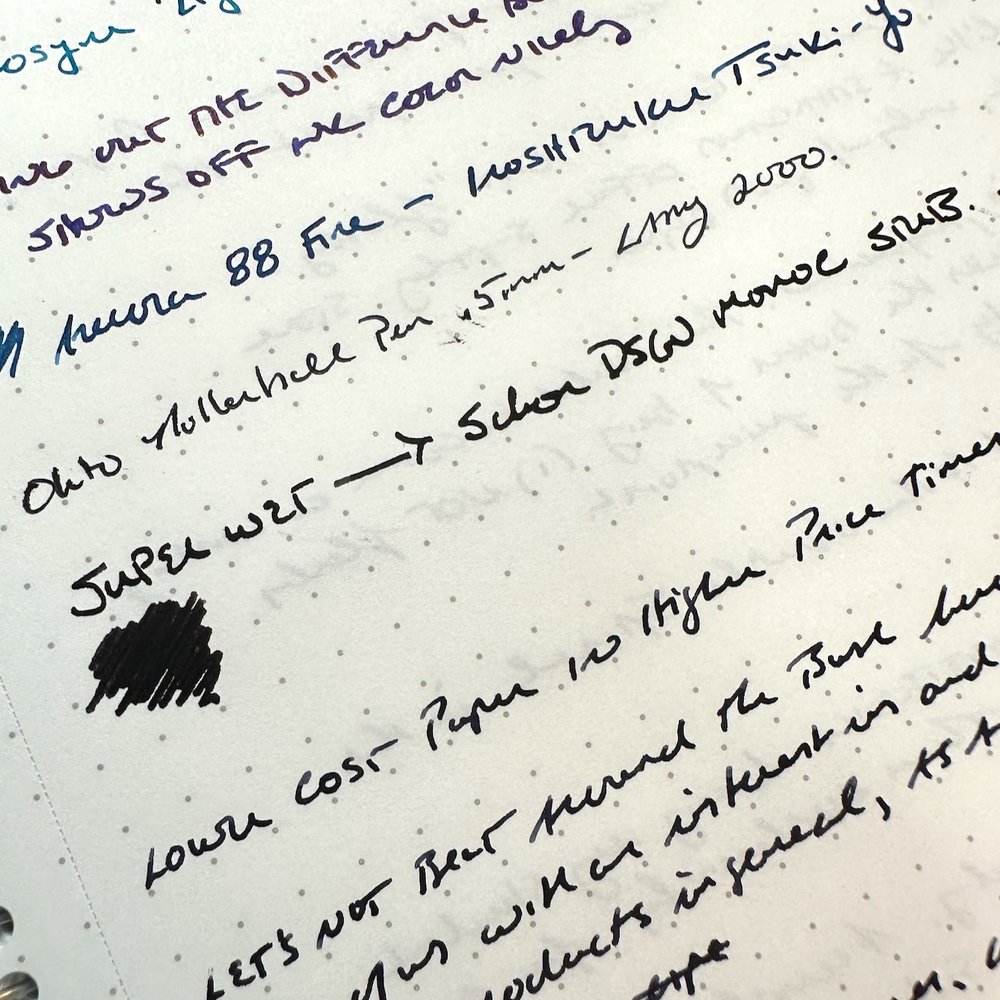 out the Difference
shows off ink color nicely
Aurora 88 Fire - Iroshizuku Tsuki-yo
Ohto Rollerball Pen .5mm - Lamy 2000.
SUPER WET → Schon DSGN Monoc StuB.
Lower COST Paper in Higher Price Times
LET'S NOT Beat Around the Bush
of us with an interest in and
products in general, AS
type